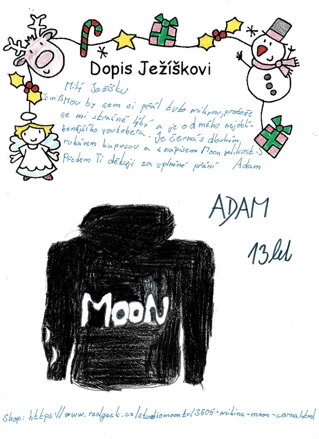 Dopis Ježíškovi
Milý Ježíšku
moc by sem si přál tuto mikynu, protože
se mi strašně líbí a je od mého nejoblí-
benějšího youtobera. Je černá s dlouhým
rukávem kapucou a s nápisem Moon velikost S
Předem Ti děkuji za splněné přání Adam
ADAM
13 let
MOON
Shop: https://www.realgeek.cz/studiomoontv/3505-mikina-moon-cerna.html